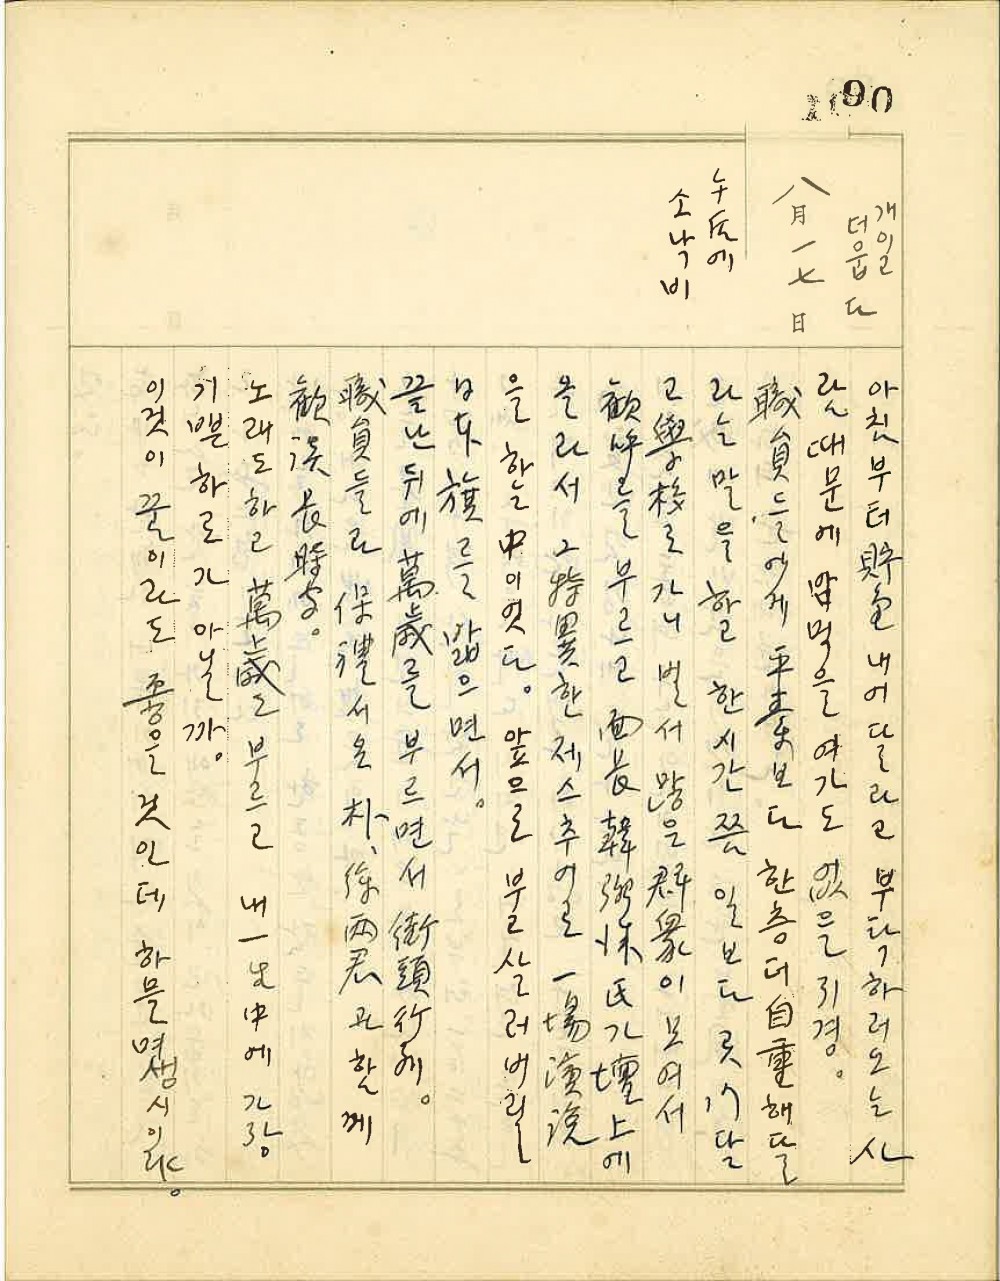 90
개이고
더웁다
八月一七日
午后에
소낙비
아침부터 貯金 내여달라고 부탁하러오는 사
람 때문에 밥먹을 여가도 없을 지경.
職員들에게 平素보다 한층 더 自重해달
라는 말을 하고 한시간쯤 일보다 곳
고 學校로 가니 벌서 많은 群衆이 모여서
歡呼를 부르고 面長 韓 氏가 壇上에
올라서 그 特異한 제스추어로 一場演說
을 하는 中이엿다。 앞으로 불살러버릴
日本旗를 밟으면서。
끝난 뒤에 萬歲를 부르면서 街頭行列。
職員들과 保 서 온 朴、徐 兩君과 함께
歡 長時
노래도 하고 萬歲도 부르고 내 一生中에 가장
기쁜 하로가 아닐까。
이것이 꿈이라도 좋을 것인데 하물며 생시이랴。